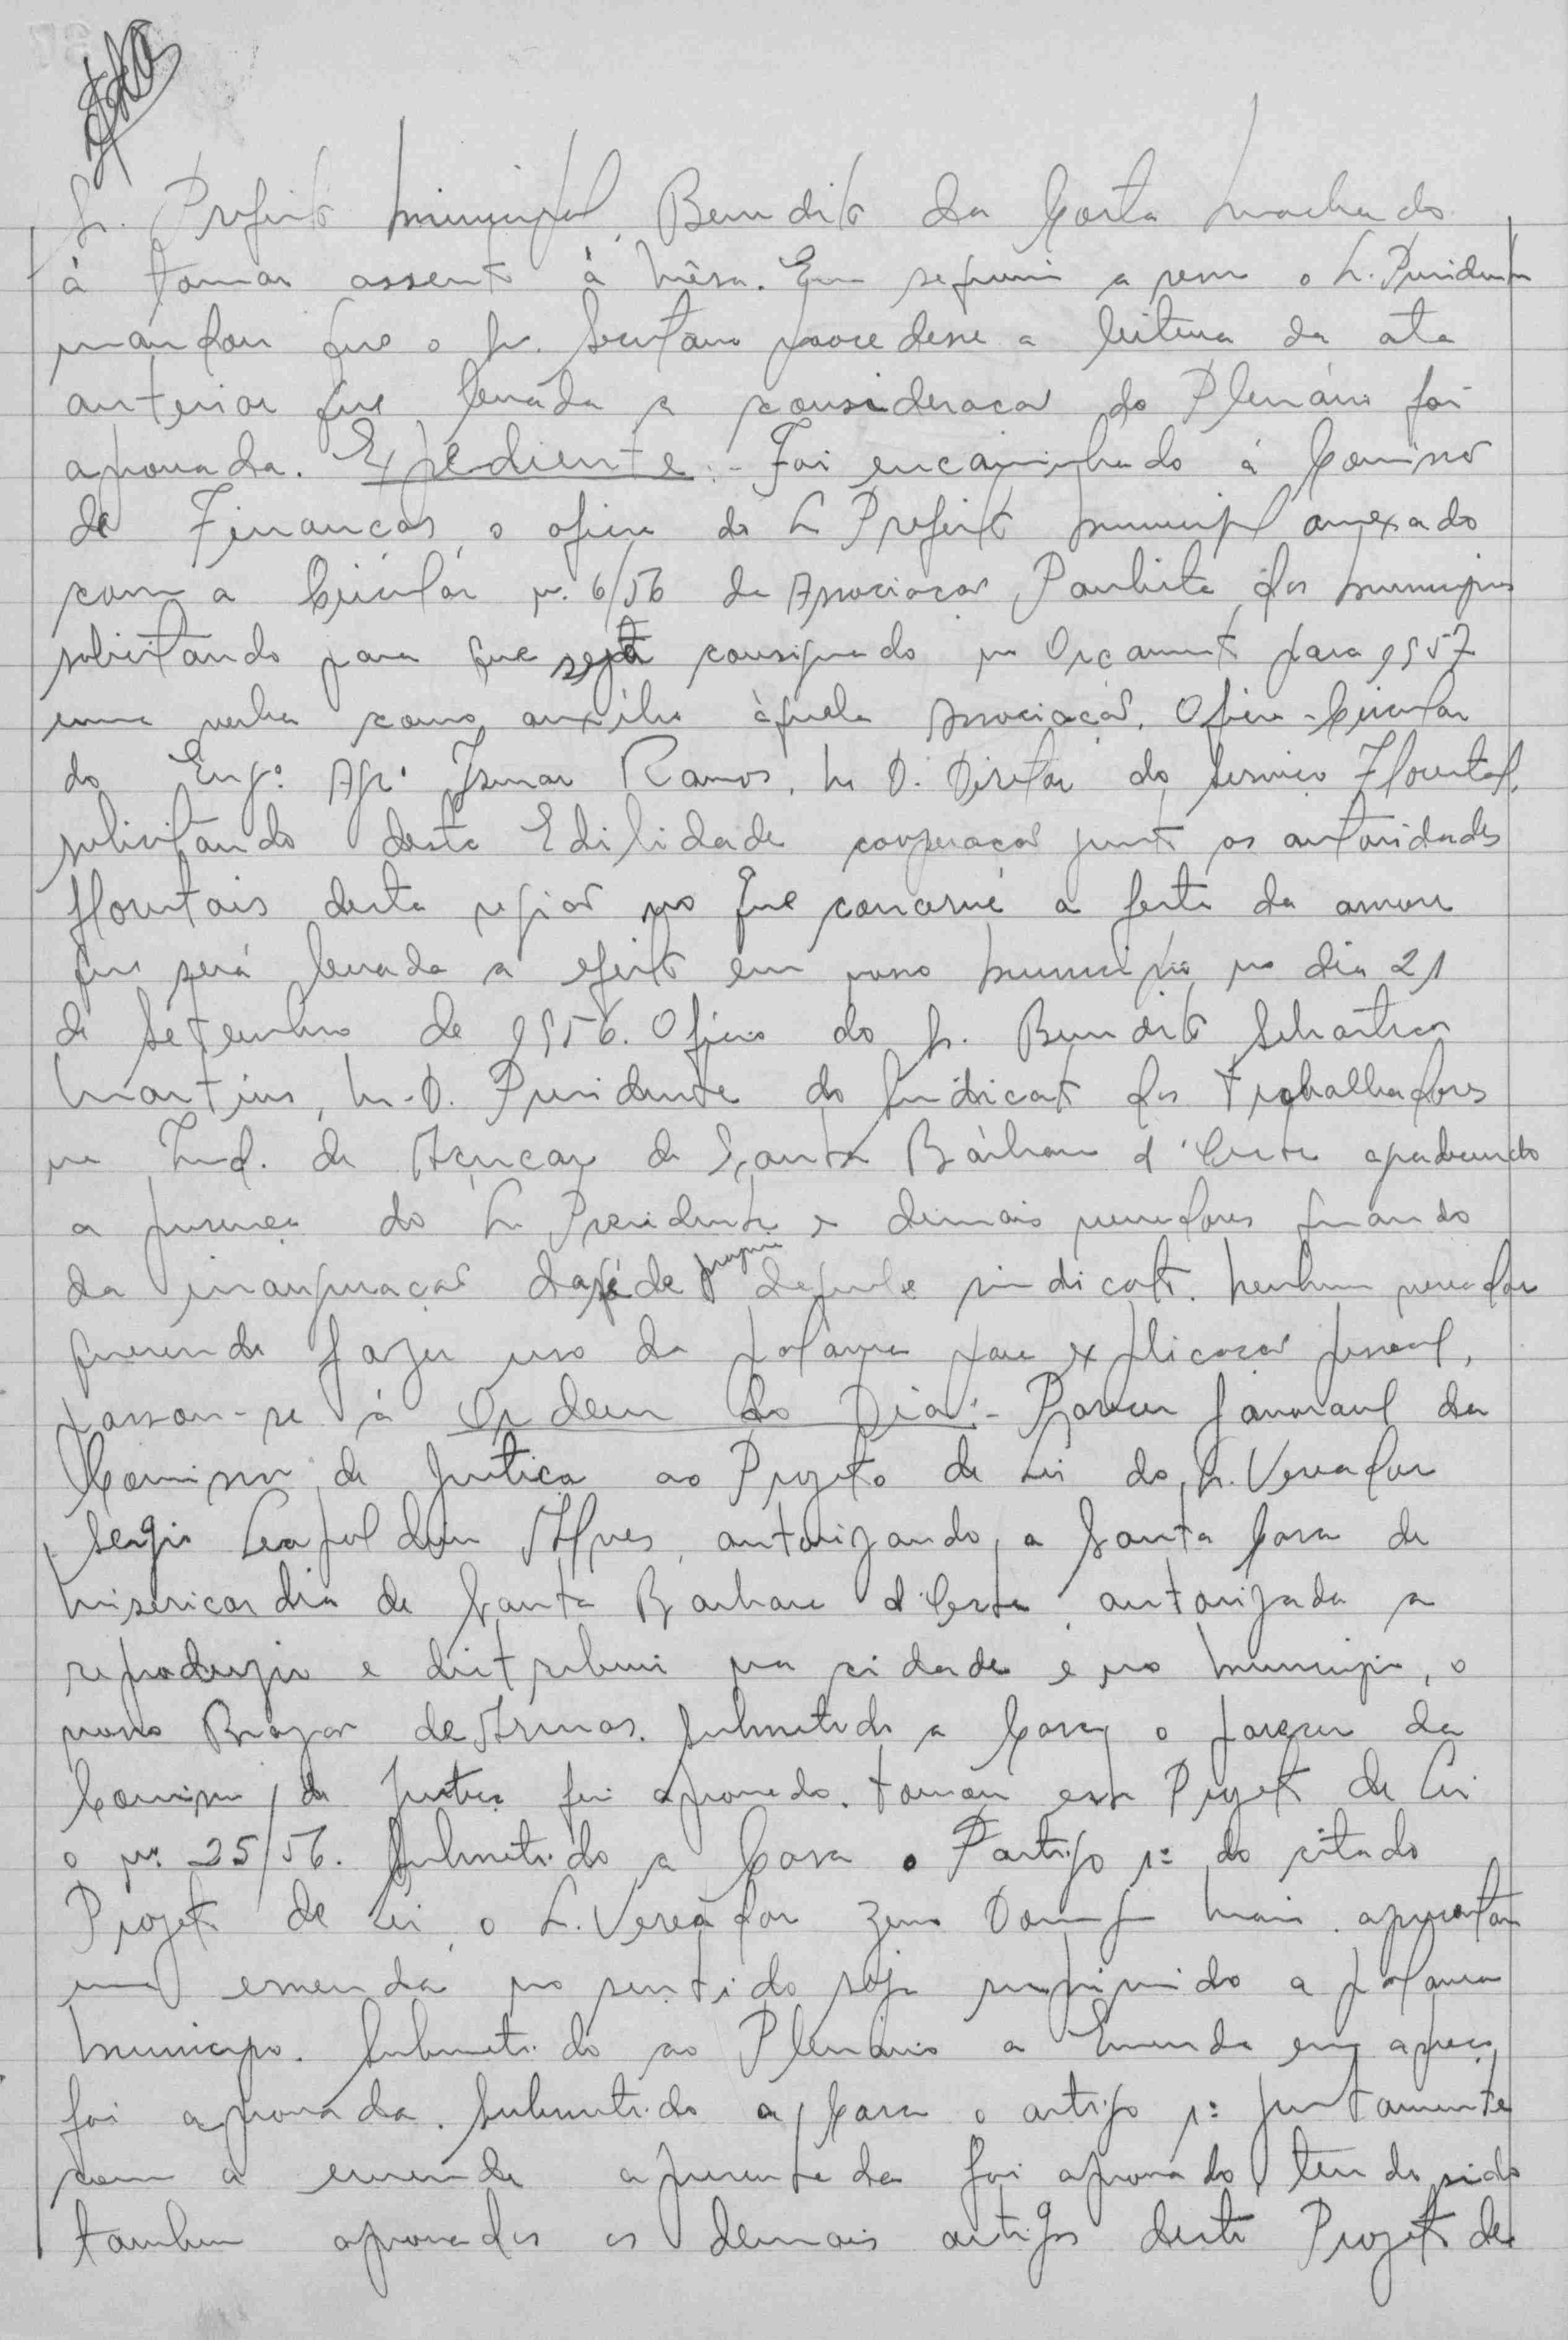 Sr. Prefeito Municipal, Benedito da Costa Machado
à tomar assento à Mêsa. Em seguimi a sem o Sr. Presidente
mandou que o Sr. Secretário procedesse a leitura da ata
anterior que levada a consideração do Plenário foi
aprovada. Expediente:- Foi encaminhado à Comissão
de Finanças, o oficio do Sr Prefeito Municipal anexado
com a Circular n. 6/56 da Associação Paulista dos Municipios
solicitando para que seja consignado no Orçamento para 1957
uma verba como auxílio àquela Associação. Oficio-Circular
do Engº. Agrº Ismar Ramos, M D. Diretor do Serviço Florestal,
solicitando desta Edilidade cooperação junto as autoridades
florestais desta região no que concerne a festa da arvore
que será levada a efeito em nosso Municipio no dia 21
de Setembro de 1956. Oficio do Sr. Benedito Sebastião
Martins, M.D. Presidente do Sindicato dos Trabalhadores
na Ind. de Açucar de Santa Bárbara d'Oeste agradecendo
a presença do Sr. Presidente e demais vereadores quando
da inauguração da séde propria daquele sindicato. Nenhum vereador
querendo fazer uso da palavra para explicação pessoal,
passou-se à Ordem do Dia:- Parecer favoravel da
Comissão de Justiça ao Projeto de Lei do Sr. Vereador
Sergio Leopoldino Alves, autorizando, a Santa Casa de
Misericordia de Santa Barbara d'Oeste, autorizada a
reproduzir e distribuir na cidade e no Municipio, o
nosso Brazão de Armas. Submetido a Casa o parecer da
Comissão de Justiça foi aprovado. Tomou esse Projeto de Lei
o nº 25/56. Submetido a Casa o artigo 1º do citado
Projeto de Lei, o Sr. Vereador Zeno Maia apresentou
uma emenda no sentido seja suprimido a palavra
Municipio. Submetido ao Plenário a Emenda em apreço
foi aprovada. Submetido a Casa o artigo 1º juntamente
com a emenda apresentada foi aprovado, tendo sido
tambem aprovados os demais artigos deste Projeto de